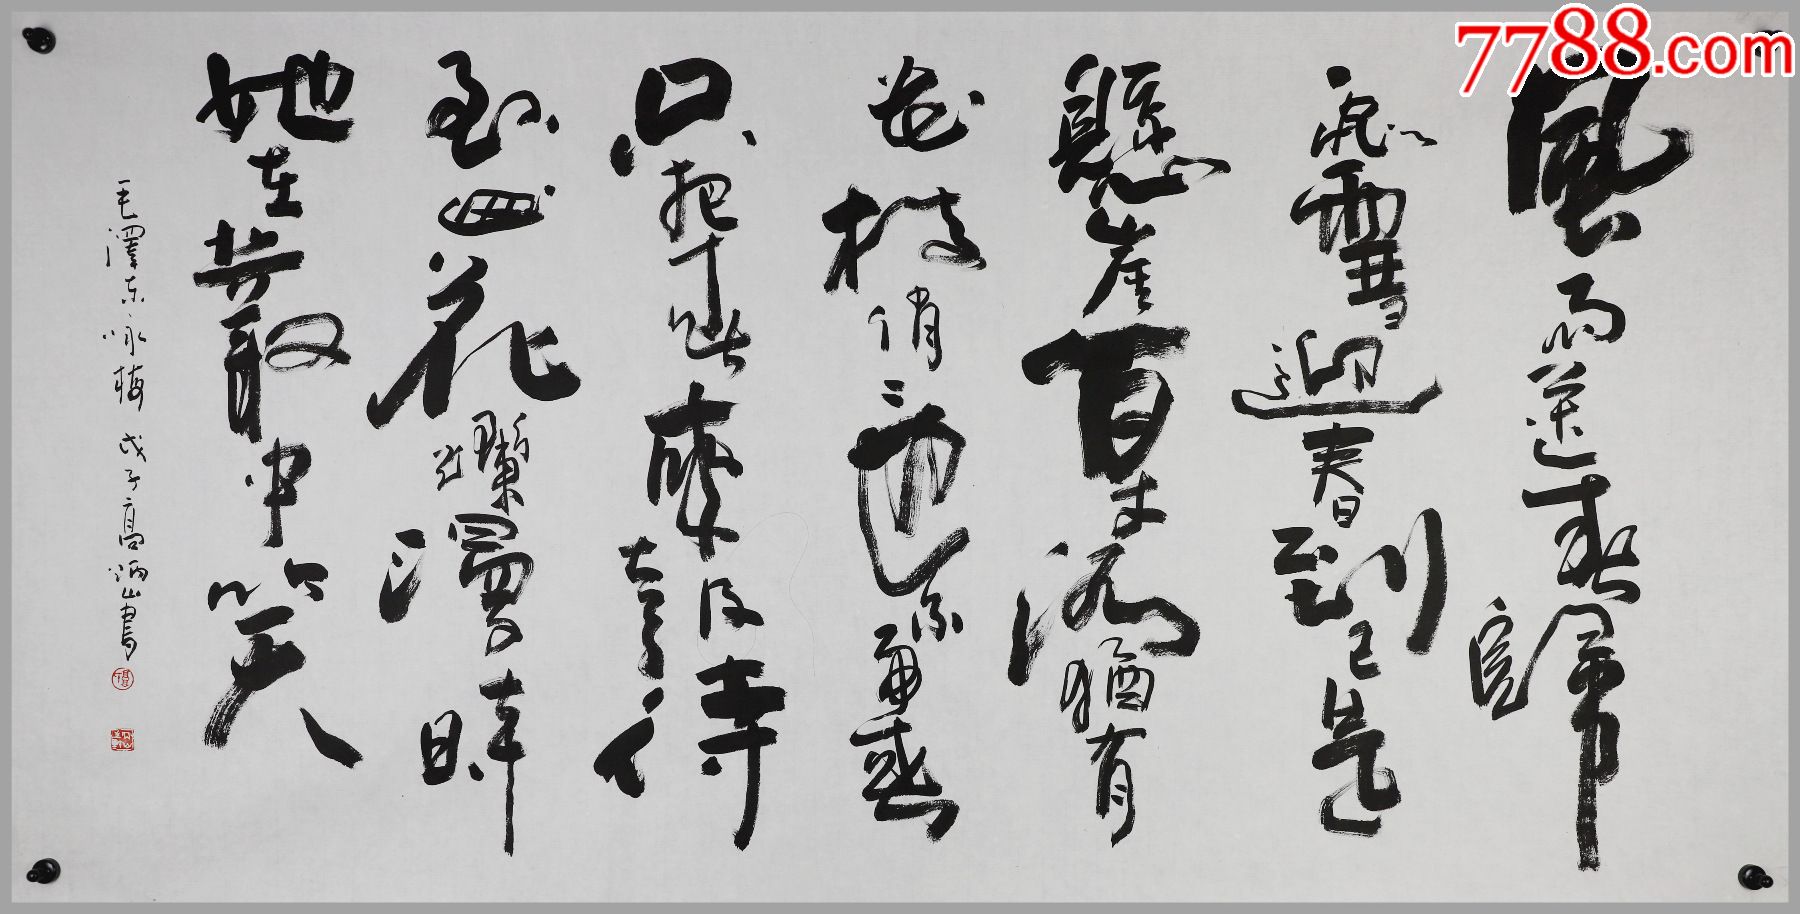 風雨送春歸
飛雪迎春到已是
懸崖百丈冰猶有
花枝俏〻也不爭春
只把春來報待
到山花爛漫時
她在叢中笑
毛澤東咏梅 戊子高炳山書
7788.com